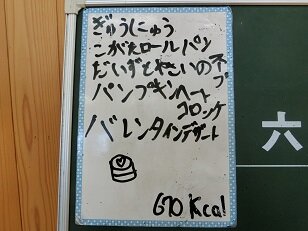 ぎゅうにゅう
こがたロールパン
だいずとやさいのネブ
パンプキンハート
コロッケ
バレンタインデザート
670 Kcal
六